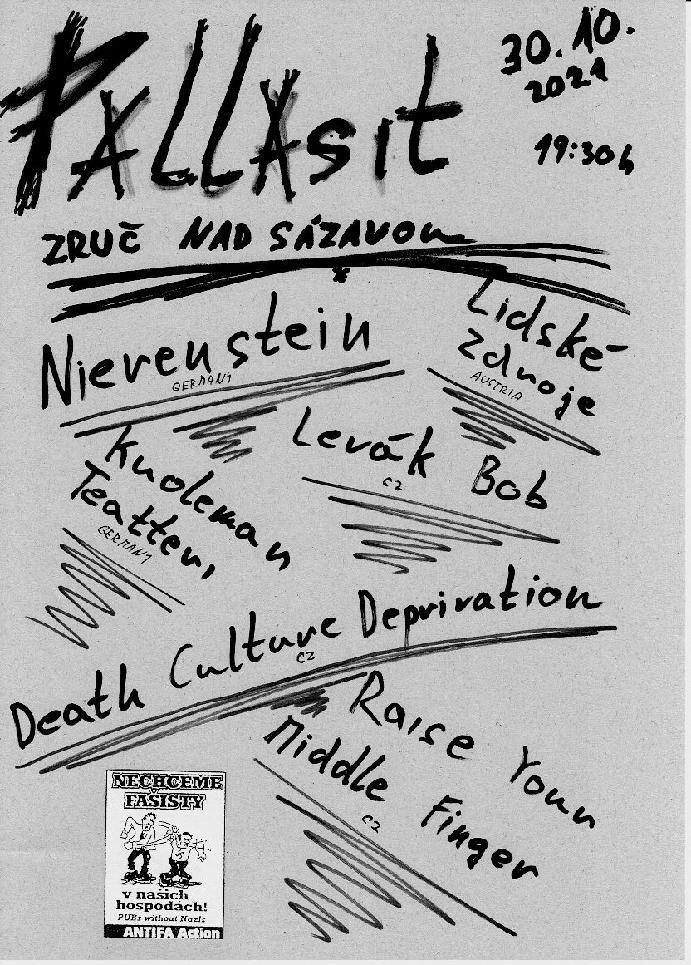 PALLAsit
30.10.
2021
19:30h
ZRUČ NAD SÁZAVOU
Nierenstein
GERMANY
Lidské
zdroje
AUSTRIA
Levák Bob
CZ
Kuoleman
Teatteri
GERMANY
Death Culture Deprivation
CZ
Raise Your
Middle Finger
CZ
NECHCEME
FAŠISTY
v našich
hospodách!
PUBs without Nazis
ANTIFA Action